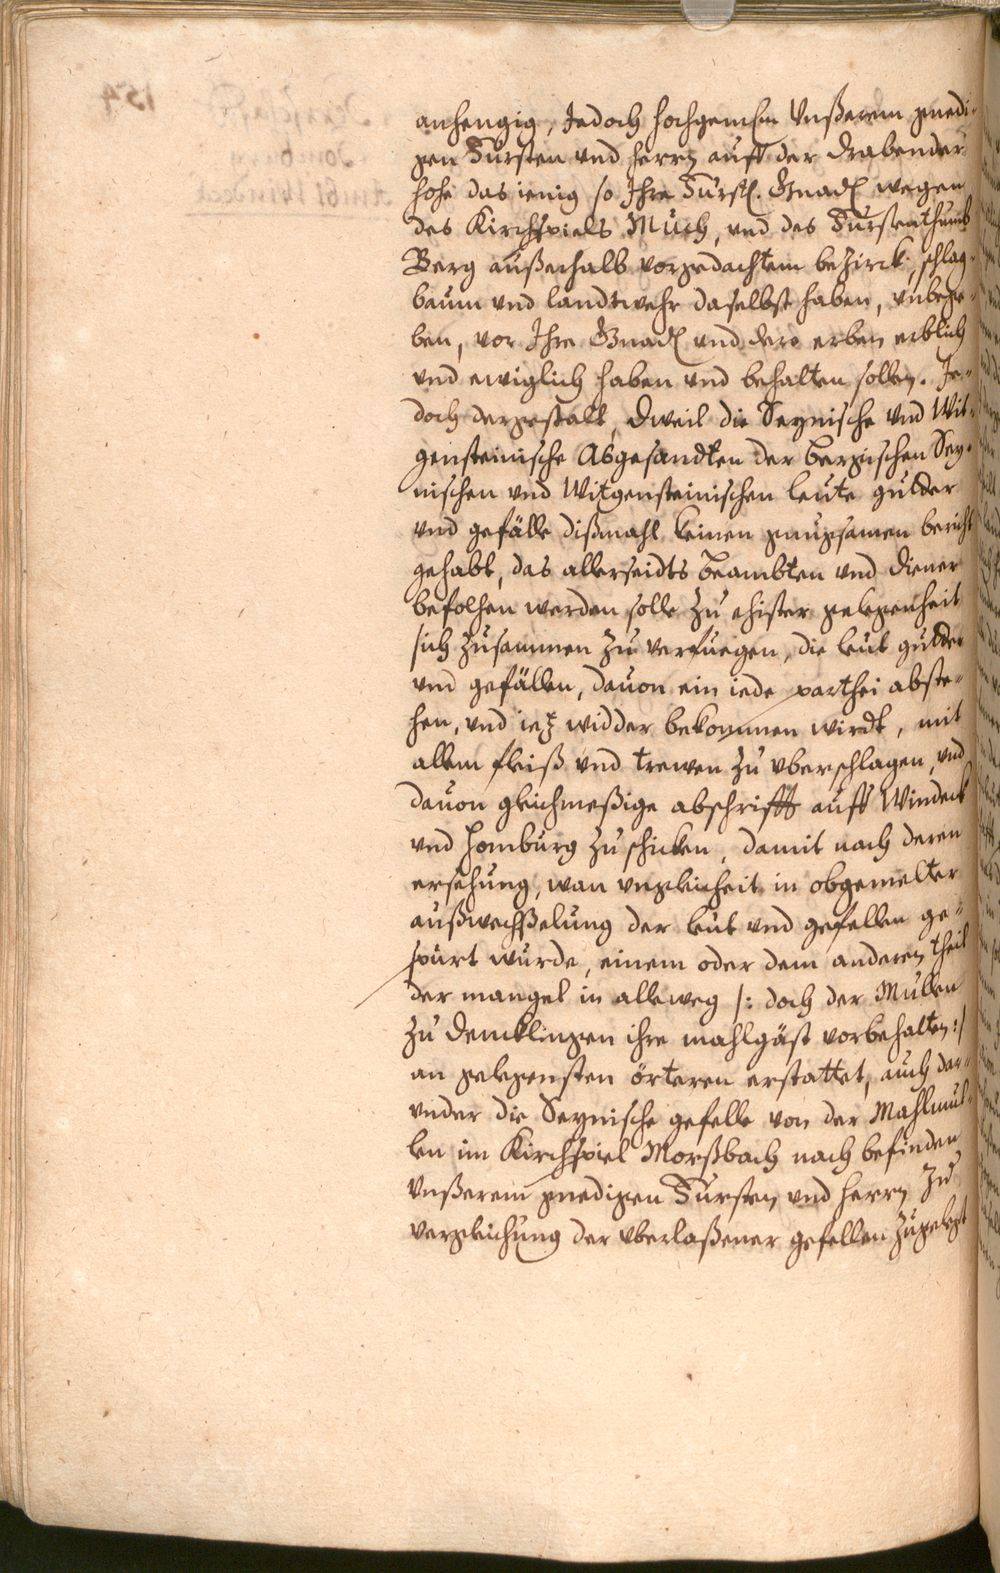 anhengig, Jedoch hochgemelten Unßerem gnedi-
gen Fursten und Herrn auff der Drabender
hohe das ienig so Ihre Furstl. Gnad. wegen
des Kirchspiels Much, und des Furstenthumb
Berg außerhalb vorgedachtem bezirck, schlag-
baum und landtwehr daselbst haben, unbege-
ben, vor Ihre Gnad. und dero erben erblich
und ewiglich haben und behalten sollen. Je-
doch dergestalt, dweil die Seynische und Wit-
gensteinische Abgesandten der bergischen Sey-
nischen und Witgensteinischen leute gulder
und gefälle dißmahl keinen gnugsamen bericht
gehabt, das allerseidts beambten und diener
befolhen werden solle zu ehister gelegenheit
sich zusammen zu verfuegen, die leut gulder
und gefällen, davon ein iede parthei abste-
hen, und ietz widder bekommen wirdt, mit
allem fleiß und trewen zu uberschlagen, und
davon gleichmeßige abschrifft auff Windeck
und Homburg zu schicken, damit nach deren
ersehung, wan ungleicheit in obgemelter
außwechßelung der leut und gefellen ge-
spurt wurde, einem oder dem anderen theil
der mangel in alleweg /: doch der Mullen
zu Denklingen ihre mahlgäst vorbehalten :/
an gelegensten örteren erstattet, auch dar-
under die Seynische gefelle von der Mahlmul-
len im Kirchspiel Morßbach nach befinden
Unßerem gnedigen Fursten und Herrn zu
vergleichung der uberlaßener gefellen zugelegt
154